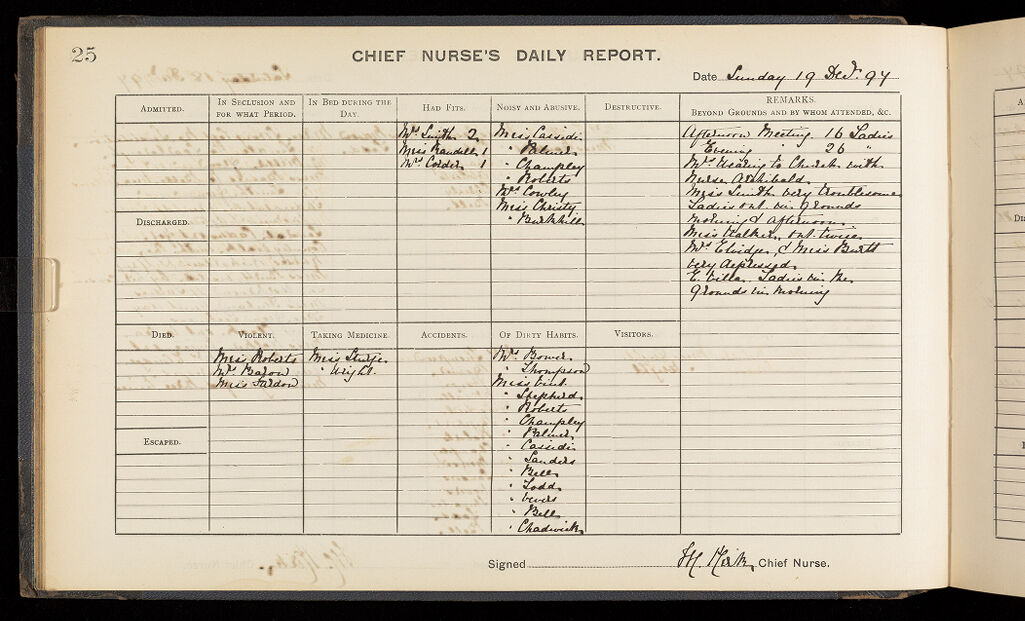 25
CHIEF NURSE'S DAILY REPORT.
Date Sunday 19 Decr. 97
ADMITTED.
IN SECLUSION AND FOR WHAT PERIOD.
IN BED DURING THE DAY.
HAD FITS.
Mrs. Smith 2
Miss Randell 1
Mrs. Corder 1
NOISY AND ABUSIVE.
Miss Cassidi
" Palmer
" Champley
" Roberts
Mrs. Cowley
Miss Christy
" Burkhill
DESTRUCTIVE.
REMARKS.
BEYOND GROUNDS AND BY WHOM ATTENDED, &C.
Afternoon Meeting 16 Ladies
" Evening " 26 "
Mrs. Wearing to Church with
Nurse Archibald.
Miss Smith very troublesome
Ladies out in grounds
morning & afternoon.
Miss Walker, out twice.
Mrs. & Miss
very depressed.
E. Villa. Ladies in the
grounds in morning
DISCHARGED.
DIED.
VIOLENT.
Miss Roberts
Mrs. Baron
Miss
TAKING MEDICINE.
Miss Sturge
" Wright.
ACCIDENTS.
OF DIRTY HABITS.
Mrs. Bower.
" Thompson
Miss
" Shepherd.
" Roberts
" Champley
" Palmer
" Cassidi
" Sanders
" Bell
" Todd
"
" Bell
" Chadwick
VISITORS.
ESCAPED.
Signed H. Kirk, Chief Nurse.